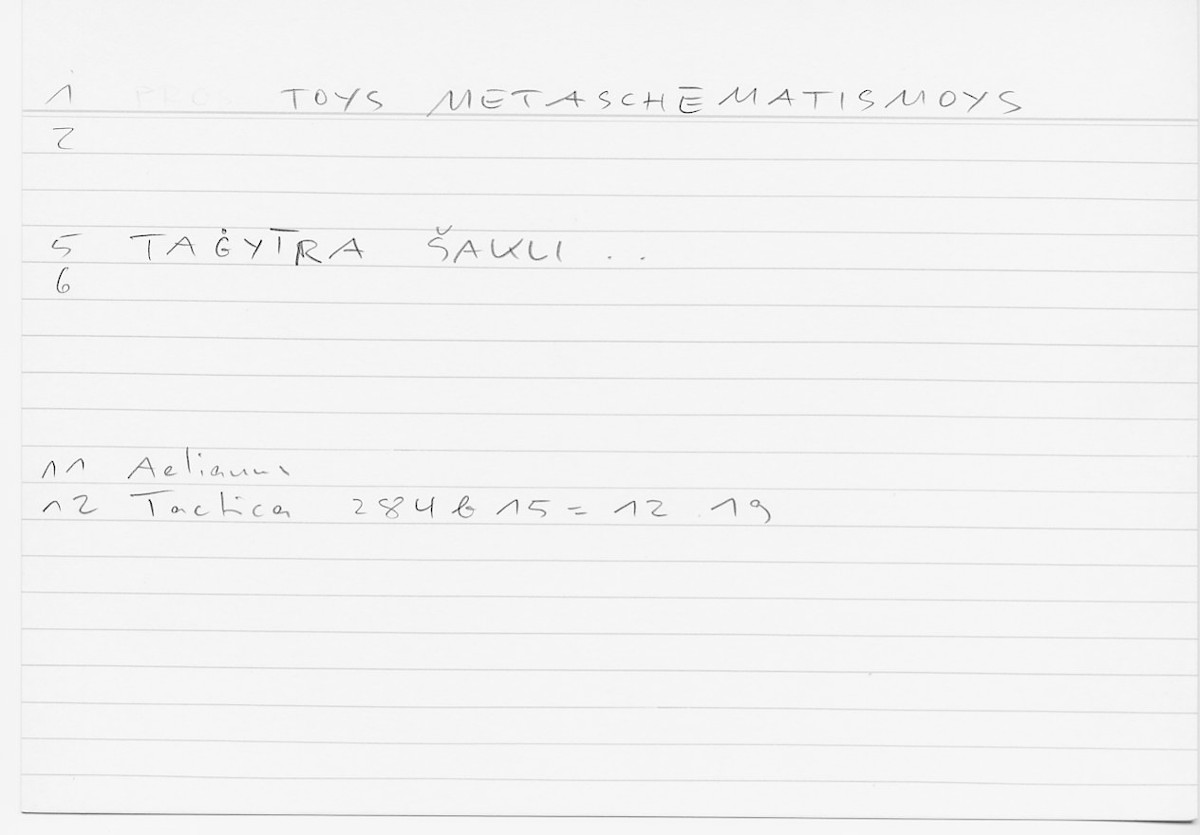 1 PROS TOYS METASCHĒMATISMOYS
2
5 TAĠYĪRA ŠAKLI ..
6
11 Aelianus
12 Tactica 284 b 15 = 12.19